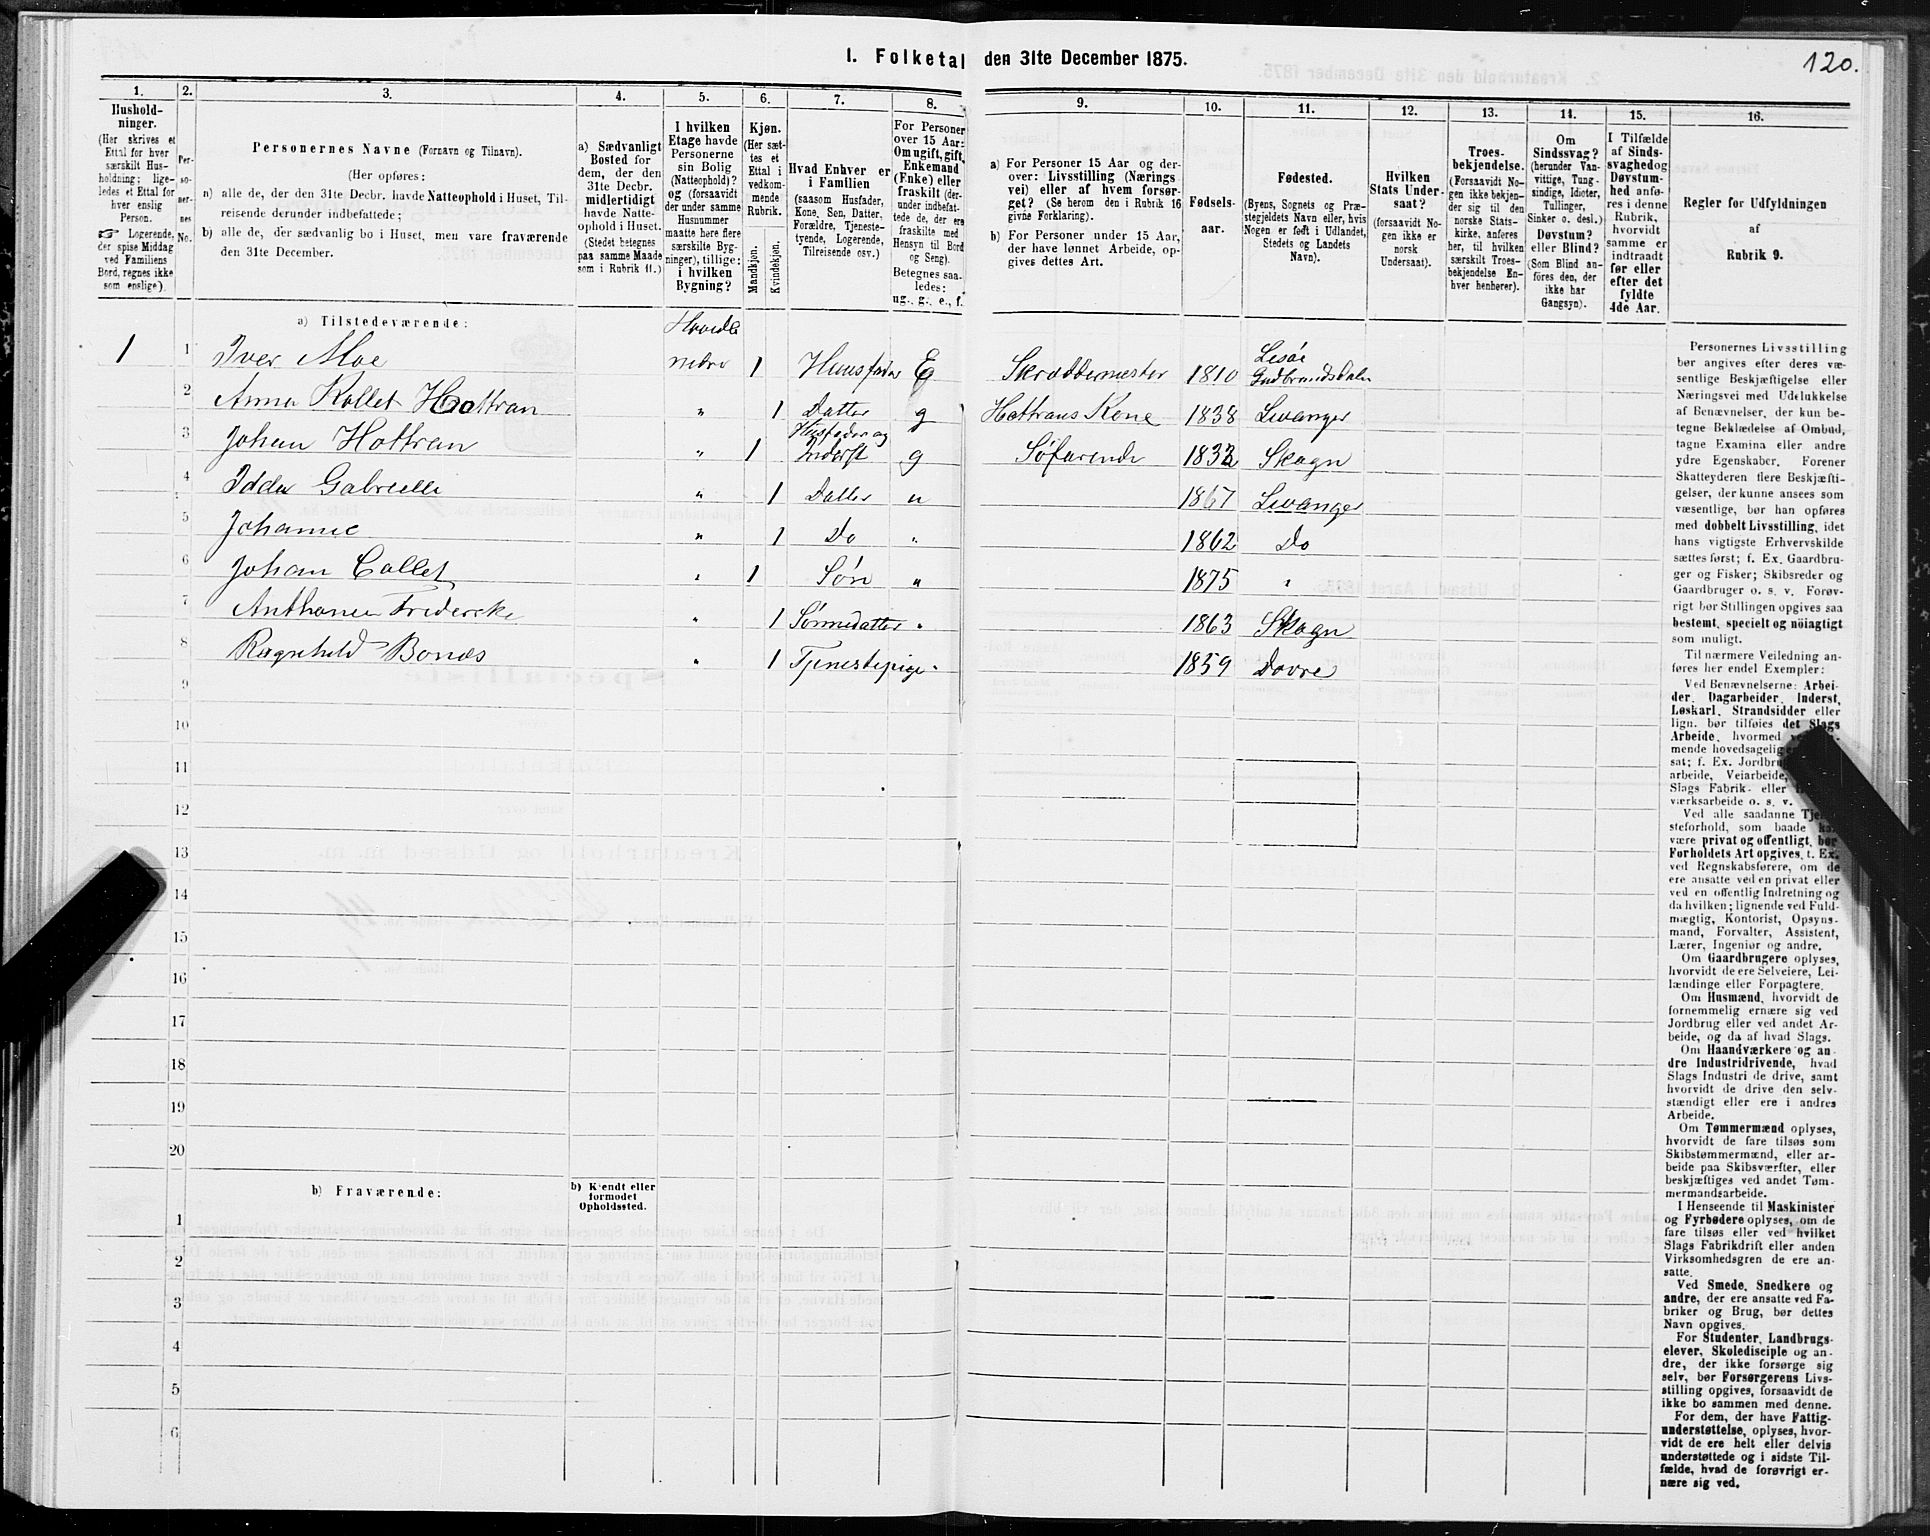 120.
1. Folketal den 31te December 1875.
1. 2. 3. 4. 5. 6. 7. 8. 9. 10. 11. 12. 13. 14. 15. 16.
Hushold-
ninger.
(Her skrives et
Ettal for hver
særskilt Hus-
holdning; lige-
ledes et Ettal for
hver enslig
Person.
☞ Logerende,
der spise Middag
ved Familiens
Bord, regnes ikke
som enslige).
Per-
so-
ner-
nes
No.
Personernes Navne (Fornavn og Tilnavn).
(Her opføres:
a) alle de, der den 31te Decbr. havde Natteophold i Huset, Til-
reisende derunder indbefattede;
b) alle de, der sædvanlig bo i Huset, men vare fraværende
den 31te December.
a) Sædvanligt
Bosted for
dem, der den
31te Decbr.
midlertidigt
havde Natte-
ophold i Huset.
(Stedet betegnes
paa samme Maade
som i Rubrik 11.)
I hvilken
Etage havde
Personerne
sin Bolig
(Natteophold)?
og (forsaavidt
der under samme
Husnummer
maatte høre flere
særskilte Byg-
ninger), tillige:
i hvilken
Bygning?
Kjøn.
(Her sæt-
tes et
Ettal i
vedkom-
mende
Rubrik.
Mandkjøn.
Kvindekjøn.
Hvad Enhver er
i Familien
(saasom Husfader,
Kone, Søn, Datter,
Forældre, Tjeneste-
tyende, Logerende,
Tilreisende osv.)
For Personer
over 15 Aar:
Om ugift, gift,
Enkemand
(Enke) eller
fraskilt (der-
under indbefat-
tede de, der ere
fraskilte med
Hensyn til Bord
og Seng).
Betegnes saa-
ledes:
ug., g., e., f.
a) For Personer 15 Aar og der-
over: Livsstilling (Nærings
vei) eller af hvem forsør-
get? (Se herom den i Rubrik 16
givne Forklaring).
b) For Personer under 15 Aar,
der have lønnet Arbeide, op-
gives dettes Art.
Fødsels-
aar.
Fødested.
(Byens, Sognets og Præ-
stegjeldets Navn eller, hvis
Nogen er født i Udlandet,
Stedets og Landets
Navn).
Hvilken
Stats Under-
saat?
(forsaavidt No-
gen ikke er
norsk
Undersaat).
Troes-
bekjendelse.
(Forsaavidt No-
gen ikke bekjen-
der sig til den
norske Stats-
kirke, anføres
her, til hvilken
særskilt Troes-
bekjendelse En-
hver henhører).
Om
Sindssvag?
(herunder Van-
vittige, Tung-
sindige, Idioter,
Tullinger,
Sinker o. desl.)
Døvstum?
eller Blind?
(Som Blind an-
føres den, der
ikke har
Gangsyn).
I Tilfælde
af Sinds-
svaghed og
Døvstum-
hed anfø-
res i denne
Rubrik,
hvorvidt
samme er
indtraadt
før eller
efter det
fyldte
4de Aar.
Regler for Udfyldningen
af
Rubrik 9.
a) Tilstedeværende:
1 1 Iver Moe nedre 1 Huusfader E Skræddermester 1810 Lesøe Gudbrandsdalen
2 Anna Kollet Hottran " 1 Datter g Hottrans Kone 1838 Levanger
3 Johan Hottran " 1 Husfader og Inderst g Søfarende 1832 Skogn
4 Idda Gabrielle " 1 Datter u 1867 Levanger
5 Johanne " 1 Do " 1862 Do
6 Johan Collet " 1 Søn " 1875 "
7 Anthonie Fridercke " 1 Sønnedatter " 1863 Skogn
8 Ragnhild Bonæs " 1 Tjenestepige " 1859 Dovre
9
10
11
12
13
14
15
16
17
18
19
20
b) Fraværende:
b) Kjendt eller
formodet
Opholdssted.
1
2
3
4
5
6
Personernes Livsstilling
bør angives efter deres væ-
sentlige Beskjæftigelse eller
Næringsvei med Udelukkelse
af Benævnelser, der kun be-
tegne Beklædelse af Ombud,
tagne Examina eller andre
ydre Egenskaber. Forener
Skatteyderen flere Beskjæfti-
gelser, der kunne ansees som
væsentlige, bør han opføres
med dobbelt Livsstilling, idet
hans vigtigste Erhvervskilde
sættes først; f. Ex. Gaardbru-
ger og Fisker; Skibsreder og
Gaardbruger o. s. v. Forøv-
rigt bør Stillingen opgives saa
bestemt, specielt og nöiagtigt
som muligt.
Til nærmere Veiledning an-
føres her endel Exempler:
Ved Benævnelserne: Arbei-
der, Dagarbeider, Inderst,
Løskarl, Strandsidder eller
lign. bør tilføies det Slags
Arbeide, hvormed
mende hovedsagelig
sat; f. Ex. Jordbru
arbeide, Veiarbeide,
Slags Fabrik- eller
værksarbeide o. s. v.
Ved alle saadanne Tje
steforhold, som baade
være privat og offentligt, bør
Forholdets Art opgives, t. Ex.
ved Regnskabsførere, om de
ere ansatte ved en privat eller
ved en offentlig Indretning og
da hvilken; lignende ved Fuld-
mægtig, Kontorist, Opsyns-
mand, Forvalter, Assistent,
Lærer, Ingeniør og andre.
Om Gaardbrugere oplyses,
hvorvidt de ere Selveiere, Lei-
lændinge eller Forpagtere.
Om Husmænd, hvorvidt de
fornemmelig ernære sig ved
Jordbrug eller ved andet Ar-
beide, og da af hvad Slags.
Om Haandværkere og an-
dre Industridrivende, hvad
Slags Industri de drive, samt
hvorvidt de drive den selv-
stændigt eller ere i andres
Arbeide.
Om Tømmermænd oplyses,
hvorvidt de fare tilsøs som
Skibstømmermænd, eller ar-
beide paa Skibsværfter, eller
beskjæftiges ved andet Tøm-
mermandsarbeide.
I Henseende til Maskinister
og Fyrbødere oplyses, om de
fare tilsøs eller ved hvilket
Slags Fabrikdrift eller anden
Virksomhedsgren de ere an-
satte.
Ved Smede, Snedkere og
andre, der ere ansatte ved Fa-
briker og Brug, bør dettes
Navn opgives.
For Studenter, Landbrugs-
elever, Skoledisciple og an-
dre, der ikke forsørge sig
selv, bør Forsørgerens Livs-
stilling opgives, forsaavidt de
ikke bo sammen med denne.
For dem, der have Fattig-
understøttelse, oplyses, hvor-
vidt de ere helt eller delvis
understøttede og i sidste Til-
fælde, hvad de forøvrigt er-
nære sig ved.